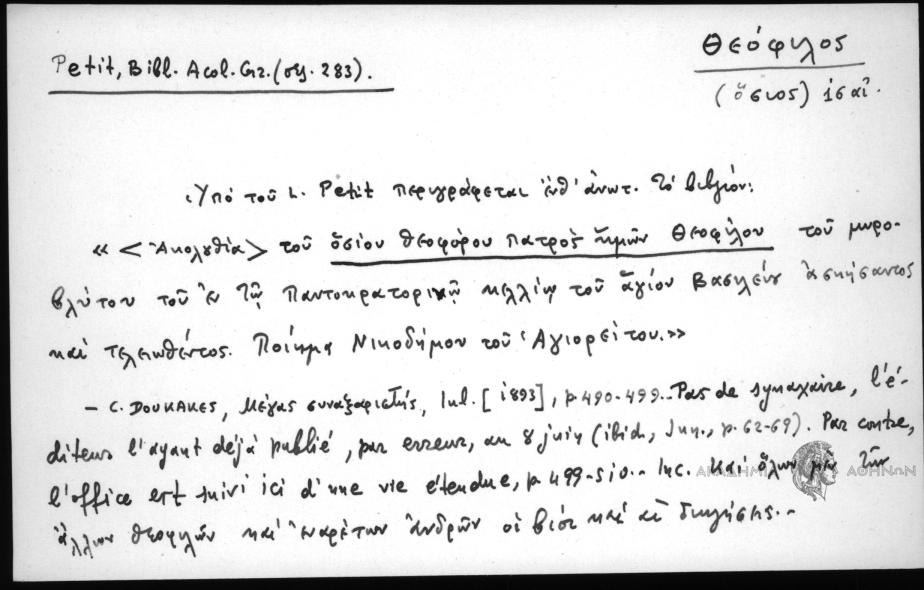 Petit, Bibl. Acol. Gr. (σελ. 283).
Θεόφιλος
(ὅσιος)
Ὑπό τοῦ L. Petit περιγράφεται ἐνθ' ἀνωτ. τό βιβλίον:
«<Ἀκολουθία> τοῦ ὁσίου θεοφόρου πατρὸς ἡμῶν Θεοφίλου τοῦ μυρο-
βλύτου τοῦ ἐν τῷ Παντοκρατορικῷ κελλίῳ τοῦ ἁγίου Βασιλείου ἀσκήσαντος
καί τελειωθέντος. Ποίημα Νικοδήμου τοῦ Ἁγιορείτου.»
— C. DOUKAKES, Μέγας συναξαριστής, Iul. [1893], p. 490-499.. Pas de synaxaire, l'é-
diteur l'ayant déjà publié, par erreur, au 8 juin (ibid., Jun., p. 62-69). Par contre,
l'office est suivi ici d'une vie étendue, p. 499-510.- Inc. Καί ὅλων μέν τῶν
ἄλλων θεοφιλῶν καί ἐναρέτων ἀνδρῶν οἱ βίοι καί αἱ διηγήσεις.-
ΑΚΑΔΗΜΙΑ ΑΘΗΝΩΝ